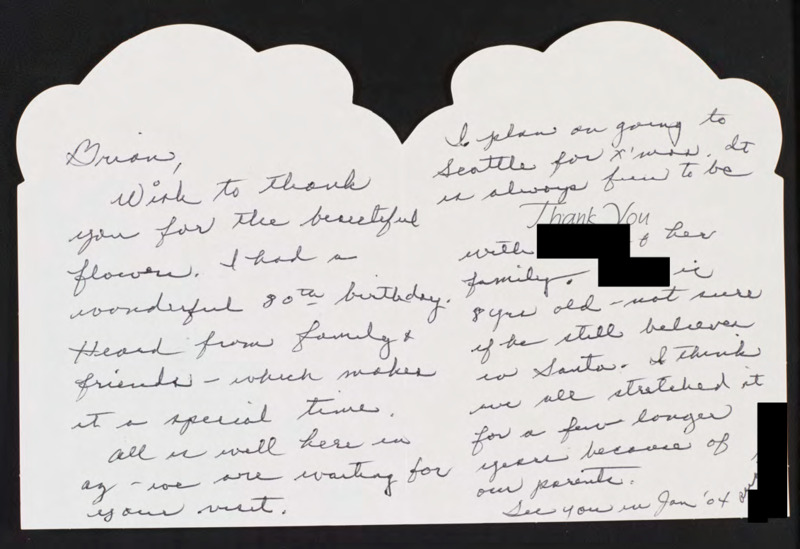 Brian,
Wish to thank
you for the beautiful
flowers. I had a
wonderful 80th birthday.
Heard from family &
friends - which makes
it a special time.
All is well here in
AZ - we are waiting for
your visit.
I plan on going to
Seattle for X'mas. It
is always fun to be
Thank You
with & her
family. is
8 yrs old - not sure
if he still believes
in Santa. I think
we all stretched it
for a few longer
years because of
our parents.
See you in Jan '04